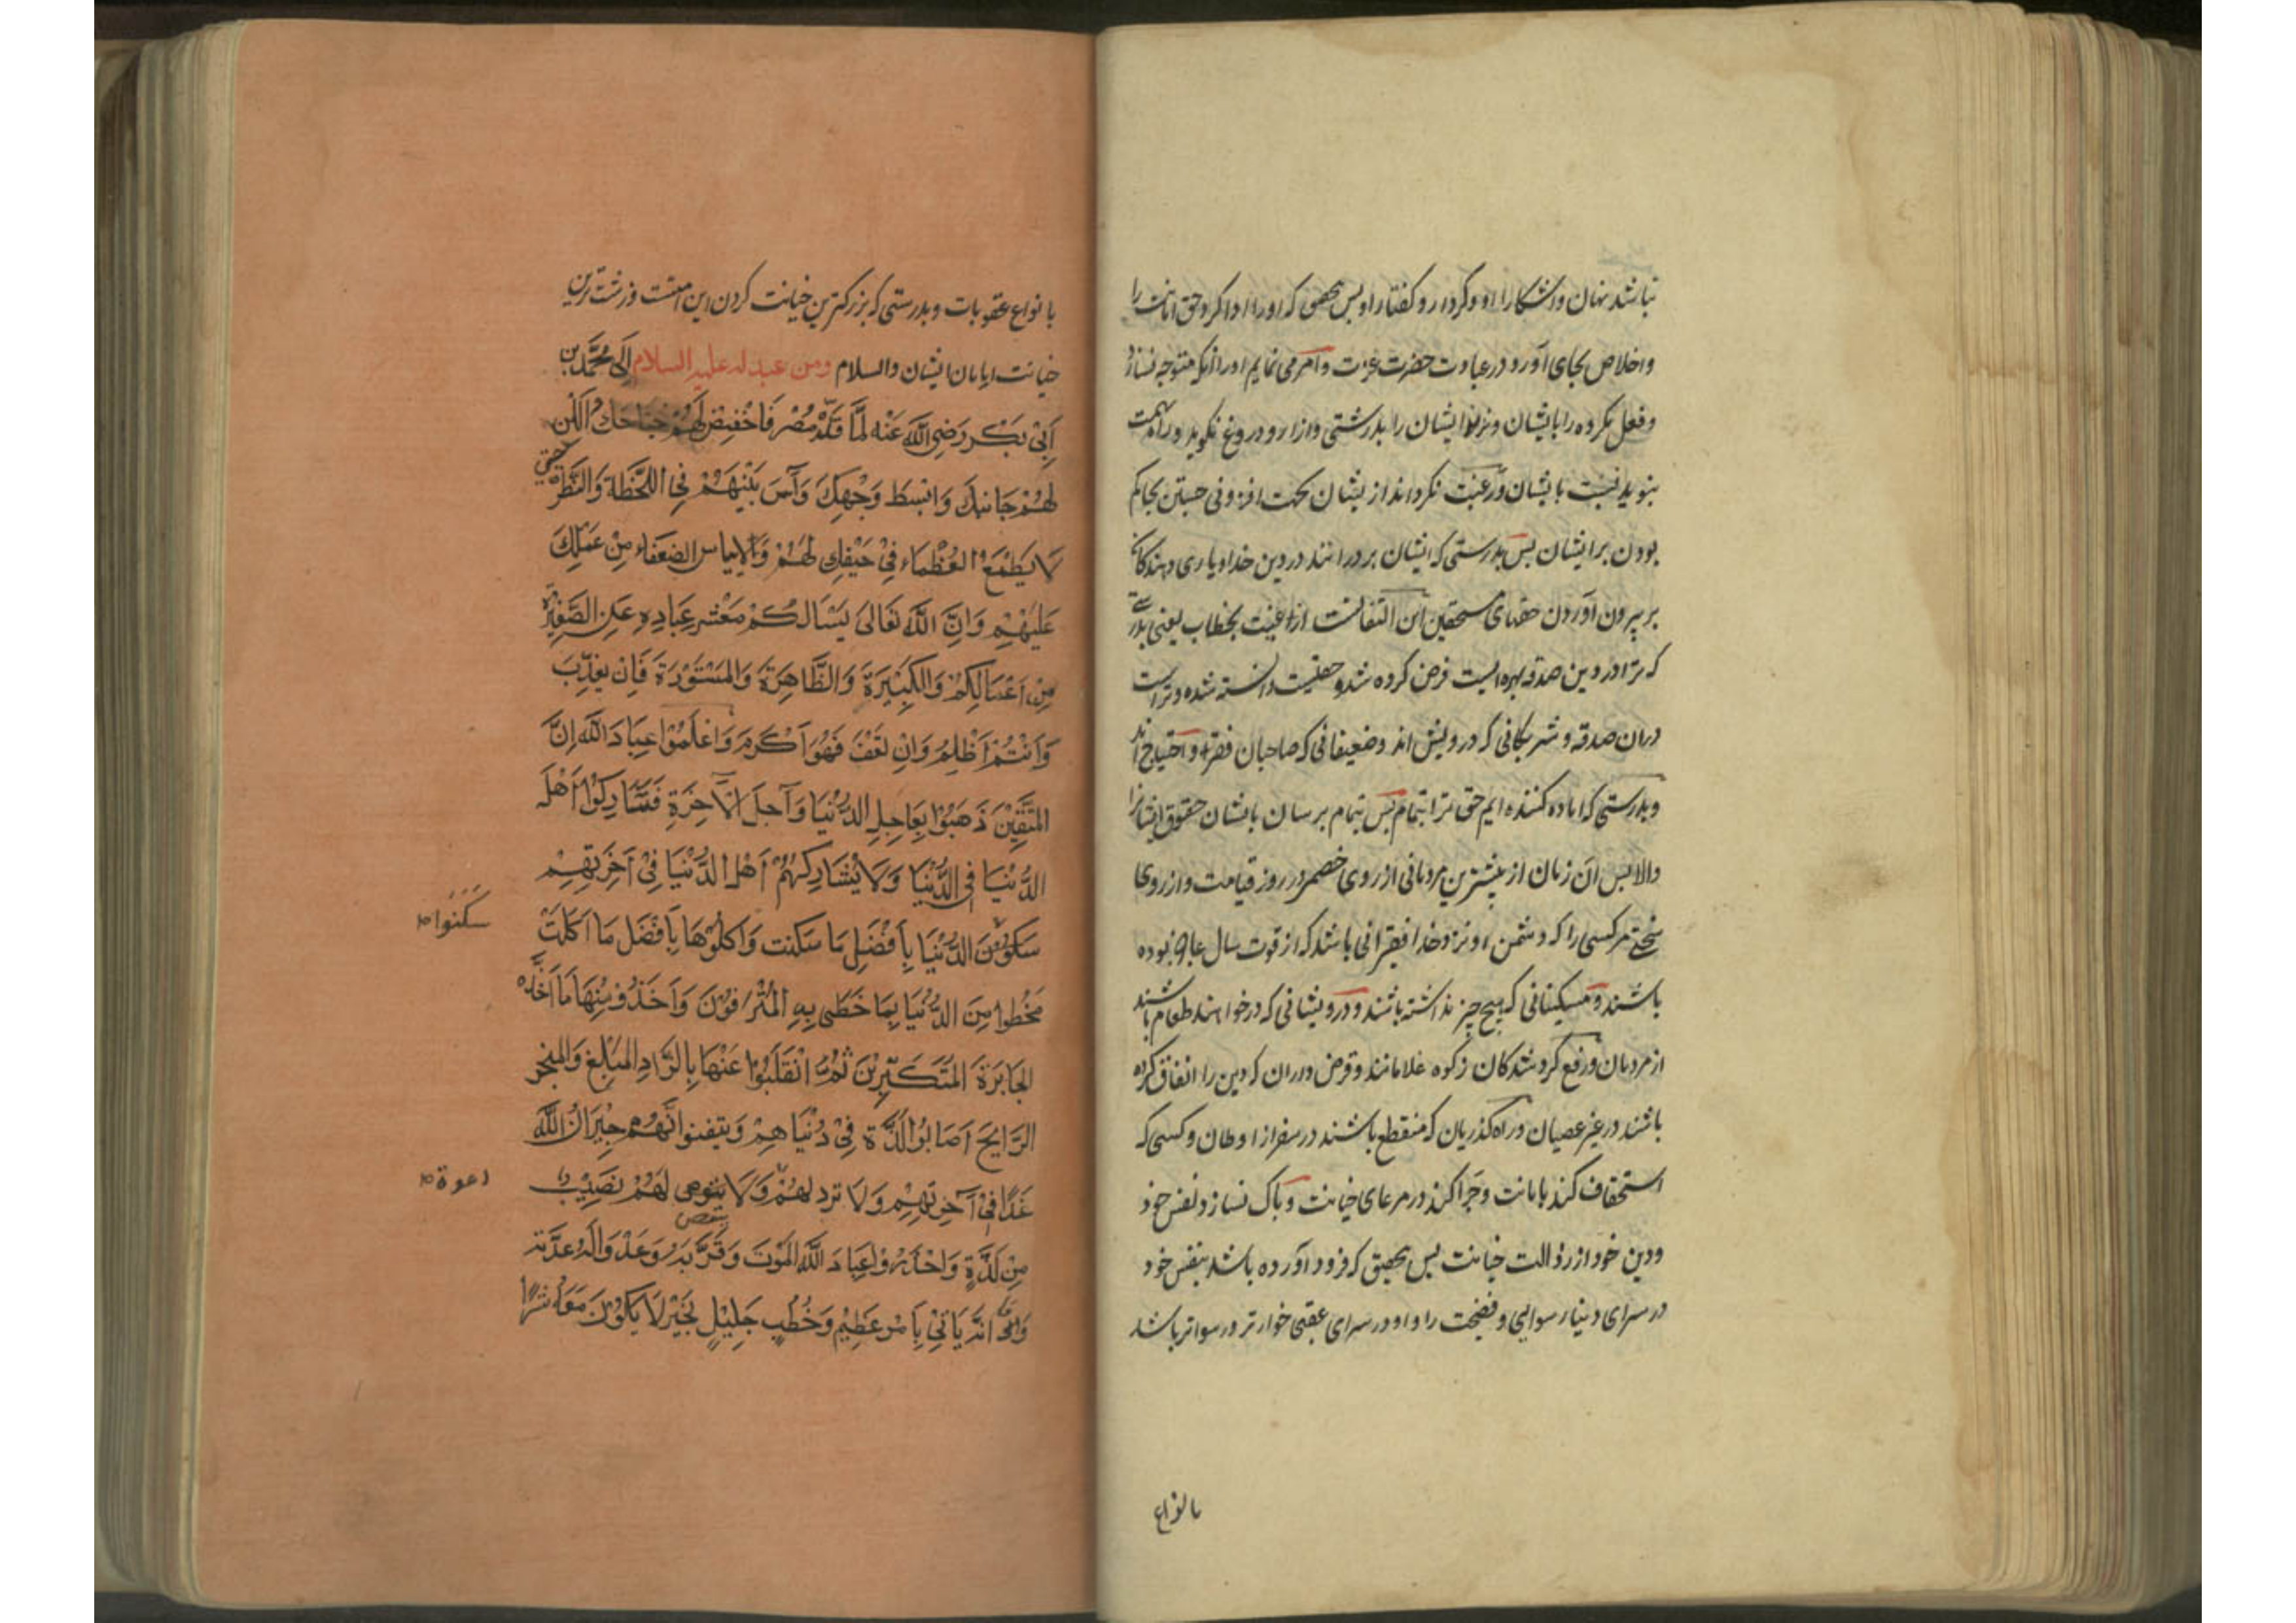 نباشد نهان و آشکارا او و کردار و کفتار او پس بحقی که او را ادا کرد حق امانت را
و اخلاص بجای آورد در عبادت حضرت عزت و امر می نمایم او را آنکه متوجه نسازد
و فعل مکروه را بایشان و نرنجاند ایشان را بدرشتی و آزار و دروغ نکوید و راه تهمت
نپوید نسبت بایشان و رغبت نکرداند از ایشان بجهت افزونی جستن بحاکم
بودن بر ایشان پس بدرستی که ایشان برادرانند در دین خدا و یاری دهندکان
بر بیرون آوردن حقهای مستحقین این التفاتست از غیبت بخطاب یعنی بدرستی
که ترا در دین صدقه بهره ایست فرض کرده شده و حقیست دانسته شده و تراست
در آن صدقه و شریکانی که درویش اند و ضعیفانی که صاحبان فقر و احتیاج اند
و بدرستی که اماده کننده ایم حق ترا بتمام پس بتمام برسان بایشان حقوق ایشانرا
والا پس آن زمان از بیشترین مردمانی از روی خصم در روز قیامت و از روی
سختی مر کسی را که دشمن او نزد خدا فقیرانی باشد که از قوت سال عاری نبوده
باشند و مسکینانی که هیچ چیز نداشته باشند و درویشانی که درخواهند طعام باشند
از مردمان و رفع کرده شدکان زکوه غلامانند و قرض داران که دین را انفاق کرده
باشند در غیر عصیان و راه کذریان که منقطع باشند در سفر از اوطان و کسی که
استحقاف کند بامانت و چرا کند در مرعای خیانت و پاک نسازد نفس خود
و دین خود از رذالت خیانت پس بحقیق که فرود آورده باشد بنفس خود
در سرای دنیا رسوایی و فضیحت را و او در سرای عقبی خوارتر و رسواتر باشد
بانواع
بانواع عقوبات و بدرستی که بزرکترین خیانت کردن این امتست و زشت ترین
خیانت امامان ایشان والسلام ومن عهد له علیه السلام الی محمد بن
ابی بکر رضی الله عنه لما قلده مصر فاخفض لهم جناحک و الن
لهم جانبک وابسط وجهک وآس بینهم فی اللحظة والنظرة حتی
لا یطمع العظماء فی حیفک لهم ولا ییاس الضعفاء من عدلک
علیهم وان الله تعالی یسالکم معشر عباده عن الصغیرة
من اعمالکم والکبیرة والظاهرة والمستورة فان یعذب
وانتم اظلم وان یعف فهو اکرم واعلموا عباد الله ان
المتقین ذهبوا بعاجل الدنیا وآجل الآخرة فشارکوا اهل
الدنیا فی الدنیا ولا یشارکهم اهل الدنیا فی آخرتهم
سکنوا الدنیا بافضل ما سکنت واکلوها بافضل ما اکلت
سکنوا
فحظوا من الدنیا بما حظی به المترفون واخذوا منها ما اخذه
الجبابرة المتکبرین ثم انقلبوا عنها بالزاد المبلغ والمتجر
الرابح اصابوا لذة فی دنیاهم ویتقنوا انهم جیران الله
غدا فی آخرتهم ولا ترد لهم ولا ینقص لهم نصیب
دعوة
من لذة واحذروا عباد الله الموت وقربه واعدوا له عدته
وانه یاتی بامر عظیم وخطب جلیل بخیر لا یکون معه شرا